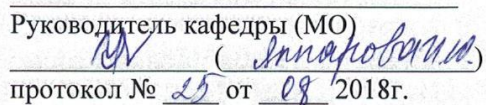 Руководитель кафедры (МО)
(Яппарова
протокол № 25 от 08 2018г.